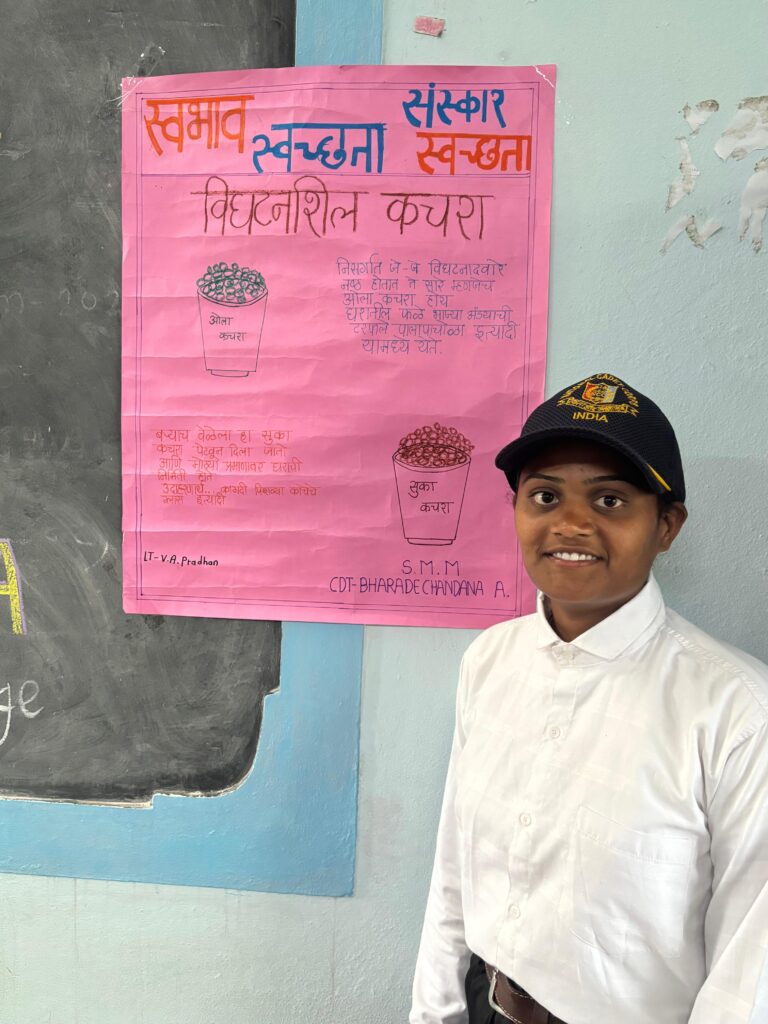 स्वभाव स्वच्छता संस्कार स्वच्छता
विघटनशिल कचरा
निसर्गात जे-जे विघटनादवारे
नष्ठ होतात ते सारं म्हणजेच
ओला कचरा होय
घरातील फळे भाज्या अंड्याची
टरफले पालापाचोळा इत्यादी
यामध्ये येते.
ओला
कचरा
बऱ्याच वेळेला हा सुका
कचरा पेटवून दिला जातो
आणि मोठ्या प्रमाणावर धुराची
निर्मिती होते
उदाहरणार्थ... कागदी पिशव्या काचेचे
ग्लास इत्यादी
सुका
कचरा
LT-V.A. Pradhan
S.M.M
CDT-BHARADE CHANDANA A.
INDIA
ge